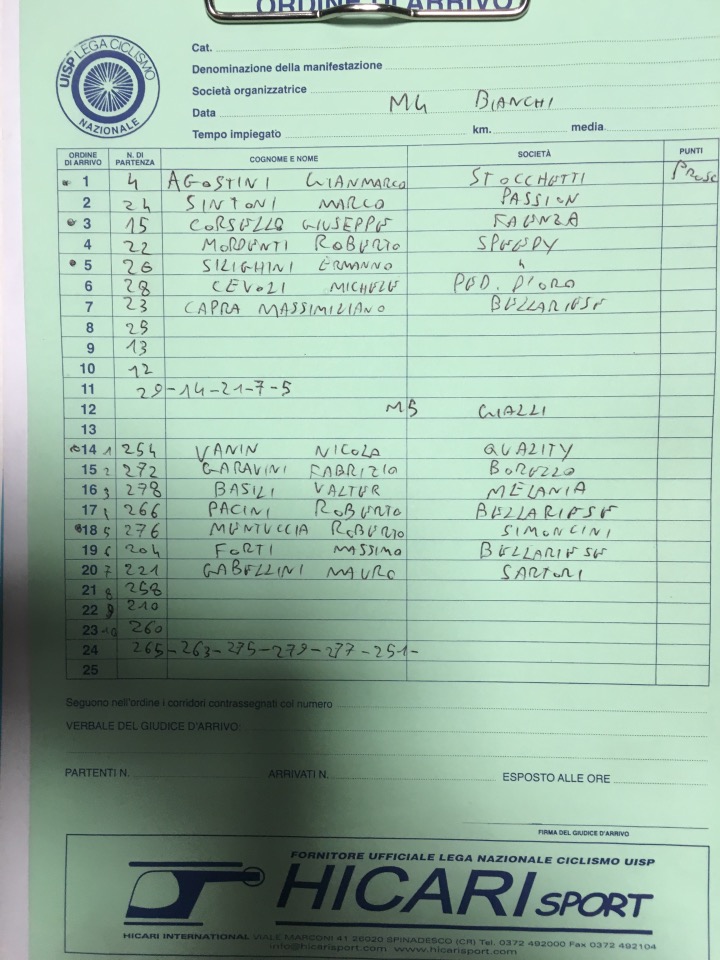 ORDINE DI ARRIVO
UISP LEGA CICLISMO
NAZIONALE
Cat.
Denominazione della manifestazione
Società organizzatrice
Data M4 BIANCHI
Tempo impiegato km. media
ORDINE DI ARRIVO N. DI PARTENZA COGNOME E NOME SOCIETÀ PUNTI
1 4 AGOSTINI GIANMARCO STOCCHETTI
2 24 SINTONI MARCO PASSION
3 15 CORSELLO GIUSEPPE FAENZA
4 22 MORDENTI ROBERTO SPEEDY
5 26 SILIGHINI ERMANNO "
6 28 CEVOLI MICHELE PED. D'ORO
7 23 CAPRA MASSIMILIANO BELLARIESE
8 25
9 13
10 12
11 29-14-21-7-5
12 M5 GIALLI
13
14 1 254 VANIN NICOLA QUALITY
15 2 272 GARAVINI FABRIZIO BORELLO
16 3 278 BASILI VALTER MELANIA
17 4 266 PACINI ROBERTO BELLARIESE
18 5 276 MENTUCCIA ROBERTO SIMONCINI
19 6 204 FORTI MASSIMO BELLARIESE
20 7 221 GABELLINI MAURO SARTORI
21 8 258
22 9 210
23 10 260
24 265-263-275-279-277-251-
25
Seguono nell'ordine i corridori contrassegnati col numero
VERBALE DEL GIUDICE D'ARRIVO:
PARTENTI N. ARRIVATI N. ESPOSTO ALLE ORE
FIRMA DEL GIUDICE D'ARRIVO
FORNITORE UFFICIALE LEGA NAZIONALE CICLISMO UISP
HICARI SPORT
HICARI INTERNATIONAL VIALE MARCONI 41 26020 SPINADESCO (CR) Tel. 0372 492000 Fax 0372 492104
info@hicarisport.com www.hicarisport.com